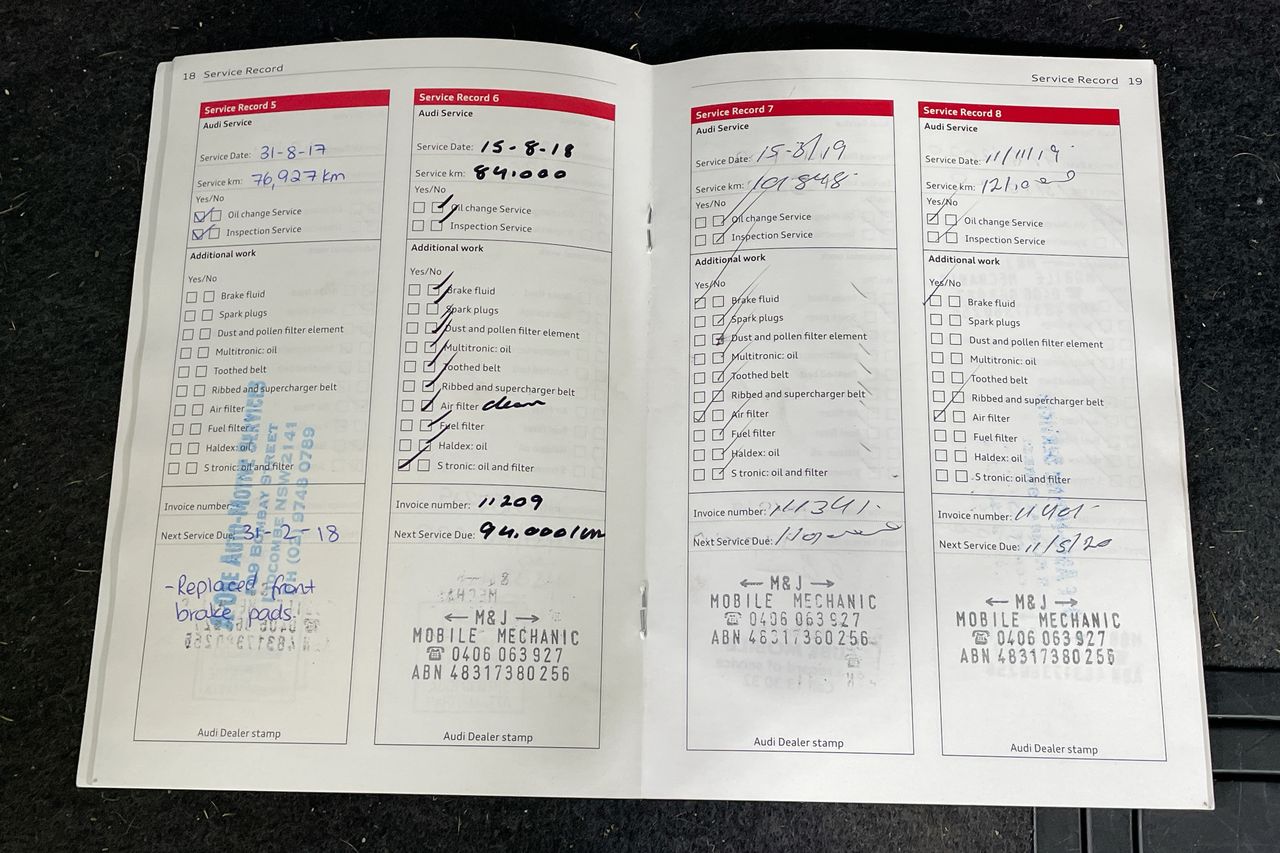 18 Service Record
Service Record 5
Audi Service
Service Date: 31-8-17
Service km: 76,927 km
Yes/No
Oil change Service
Inspection Service
Additional work
Yes/No
Brake fluid
Spark plugs
Dust and pollen filter element
Multitronic: oil
Toothed belt
Ribbed and supercharger belt
Air filter
Fuel filter
Haldex: oil
S tronic: oil and filter
Invoice number:
Next Service Due: 31-2-18
-Replaced front
brake pads.
AUTO-MOTIVE SERVICES
BOMBAY STREET
LIDCOMBE NSW 2141
PH (02) 9748 0789
Audi Dealer stamp
Service Record 6
Audi Service
Service Date: 15-8-18
Service km: 84.000
Yes/No
Oil change Service
Inspection Service
Additional work
Yes/No
Brake fluid
Spark plugs
Dust and pollen filter element
Multitronic: oil
Toothed belt
Ribbed and supercharger belt
Air filter clean
Fuel filter
Haldex: oil
S tronic: oil and filter
Invoice number: 11209
Next Service Due: 94.000km
← M&J →
MOBILE MECHANIC
☎ 0406 063 927
ABN 48317380256
Audi Dealer stamp
Service Record 19
Service Record 7
Audi Service
Service Date: 15-3/19
Service km: 101848
Yes/No
Oil change Service
Inspection Service
Additional work
Yes/No
Brake fluid
Spark plugs
Dust and pollen filter element
Multitronic: oil
Toothed belt
Ribbed and supercharger belt
Air filter
Fuel filter
Haldex: oil
S tronic: oil and filter
Invoice number: 11341
Next Service Due:
← M&J →
MOBILE MECHANIC
☎ 0406 063 927
ABN 48317380256
Audi Dealer stamp
Service Record 8
Audi Service
Service Date: 11/11/19
Service km: 121,000
Yes/No
Oil change Service
Inspection Service
Additional work
Yes/No
Brake fluid
Spark plugs
Dust and pollen filter element
Multitronic: oil
Toothed belt
Ribbed and supercharger belt
Air filter
Fuel filter
Haldex: oil
S tronic: oil and filter
Invoice number:
Next Service Due: 11/5/20
← M&J →
MOBILE MECHANIC
☎ 0406 063 927
ABN 48317380256
Audi Dealer stamp